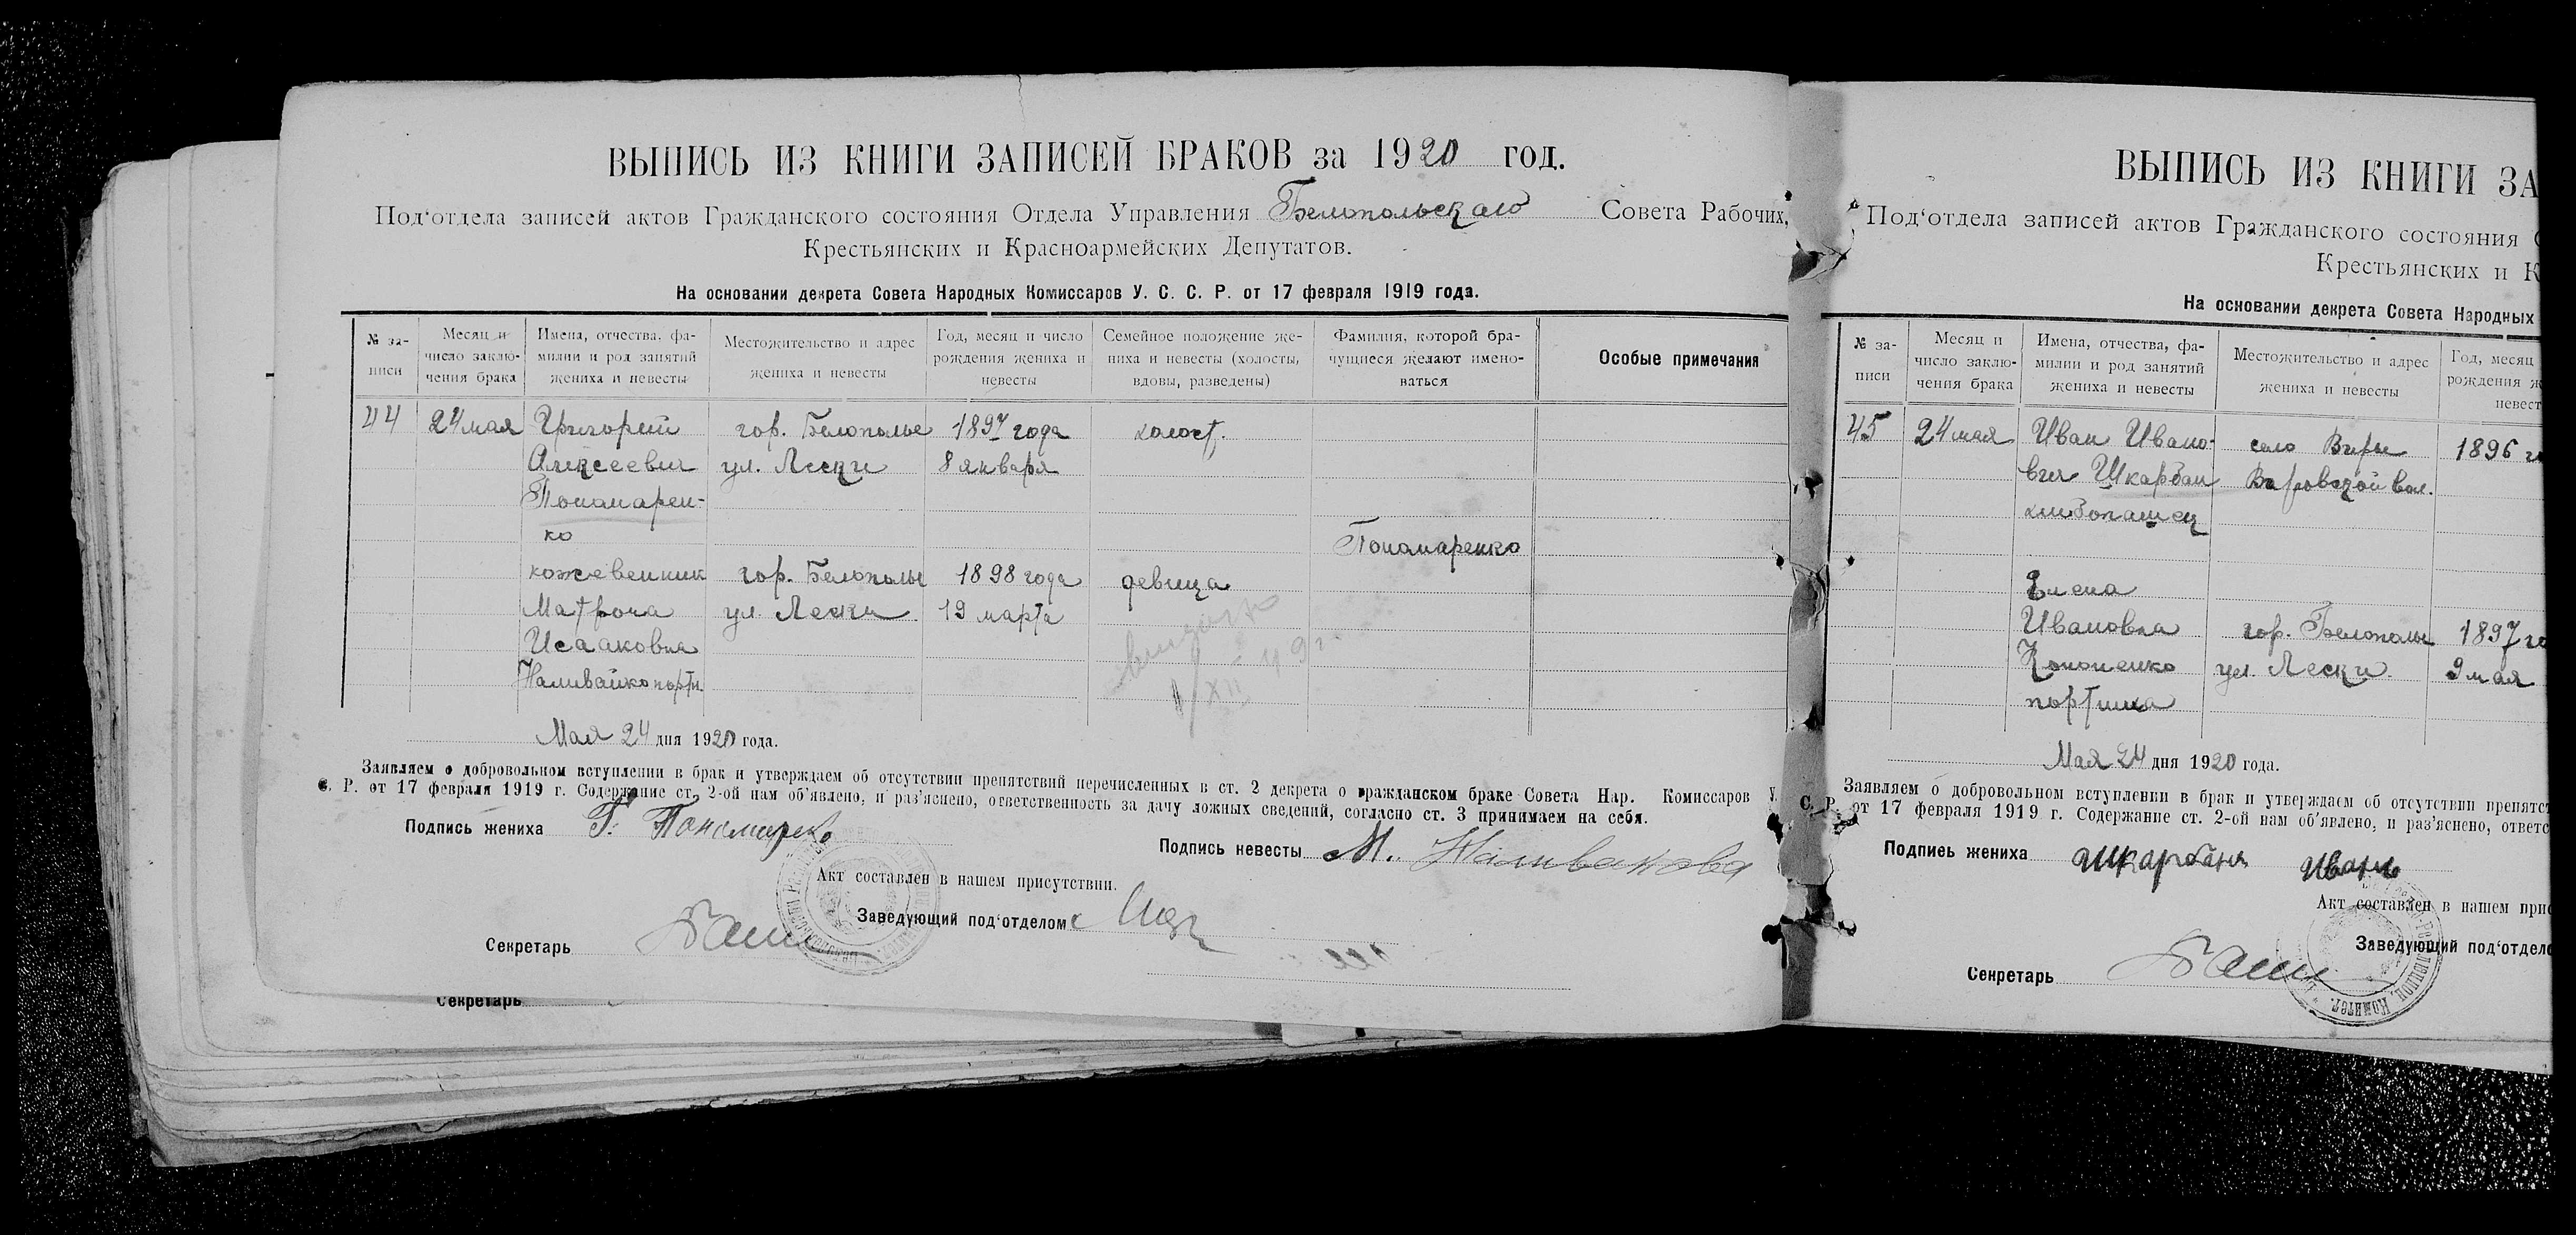 ВЫПИСЬ ИЗ КНИГИ ЗАПИСЕЙ БРАКОВ за 1920 год.
Под'отдела записей актов Гражданского состояния Отдела Управления Белопольскаго Совета Рабочих,
Крестьянских и Красноармейских Депутатов.
На основании декрета Совета Народных Комиссаров У. С. С. Р. от 17 февраля 1919 года.
№ за-
писи
Месяц и
число заклю-
чения брака
Имена, отчества, фа-
милии и род занятий
жениха и невесты
Местожительство и адрес
жениха и невесты
Год, месяц и число
рождения жениха и
невесты
Семейное положение же-
ниха и невесты (холосты,
вдовы, разведены)
Фамилия, которой бра-
чущиеся желают имено-
ваться
Особые примечания
44 24 мая Григорий гор. Белополье 1897 года холост.
Алексеевич ул. Лески 8 января
Пономарен-
ко Пономаренко
кожевенник гор. Белополье 1898 года девица
Матрона ул. Лески 19 марта
Исааковна
Наливайко портн.
Мая 24 дня 1920 года.
Заявляем о добровольном вступлении в брак и утверждаем об отсутствии препятствий перечисленных в ст. 2 декрета о гражданском браке Совета Нар. Комиссаров У.
С. Р. от 17 февраля 1919 г. Содержание ст. 2-ой нам об'явлено, и раз'яснено, ответственность за дачу ложных сведений, согласно ст. 3 принимаем на себя.
Подпись жениха Г. Пономаренко
Подпись невесты М. Наливакова
Акт составлен в нашем присутствии.
Заведующий под'отделом
Секретарь
Секретарь
ВЫПИСЬ ИЗ КНИГИ ЗА
Под'отдела записей актов Гражданского состояния
Крестьянских и К
На основании декрета Совета Народных
№ за-
писи
Месяц и
число заклю-
чения брака
Имена, отчества, фа-
милии и род занятий
жениха и невесты
Местожительство и адрес
жениха и невесты
Год, месяц
рождения ж
невест
45 24 мая Иван Ивано- село Виры 1896 го
вич Шкарбан Вировской вол.
хлибопашец
Елена
Ивановна гор. Белополье 1897 го
Кононенко ул. Лески 9 мая
портниха
Мая 24 дня 1920 года.
Заявляем о добровольном вступлении в брак и утверждаем об отсутствии препятст
С. Р. от 17 февраля 1919 г. Содержание ст. 2-ой нам об'явлено, и раз'яснено, ответс
Подпись жениха Шкарбань Иванъ
Акт составлен в нашем при
Заведующий под'отдело
Секретарь